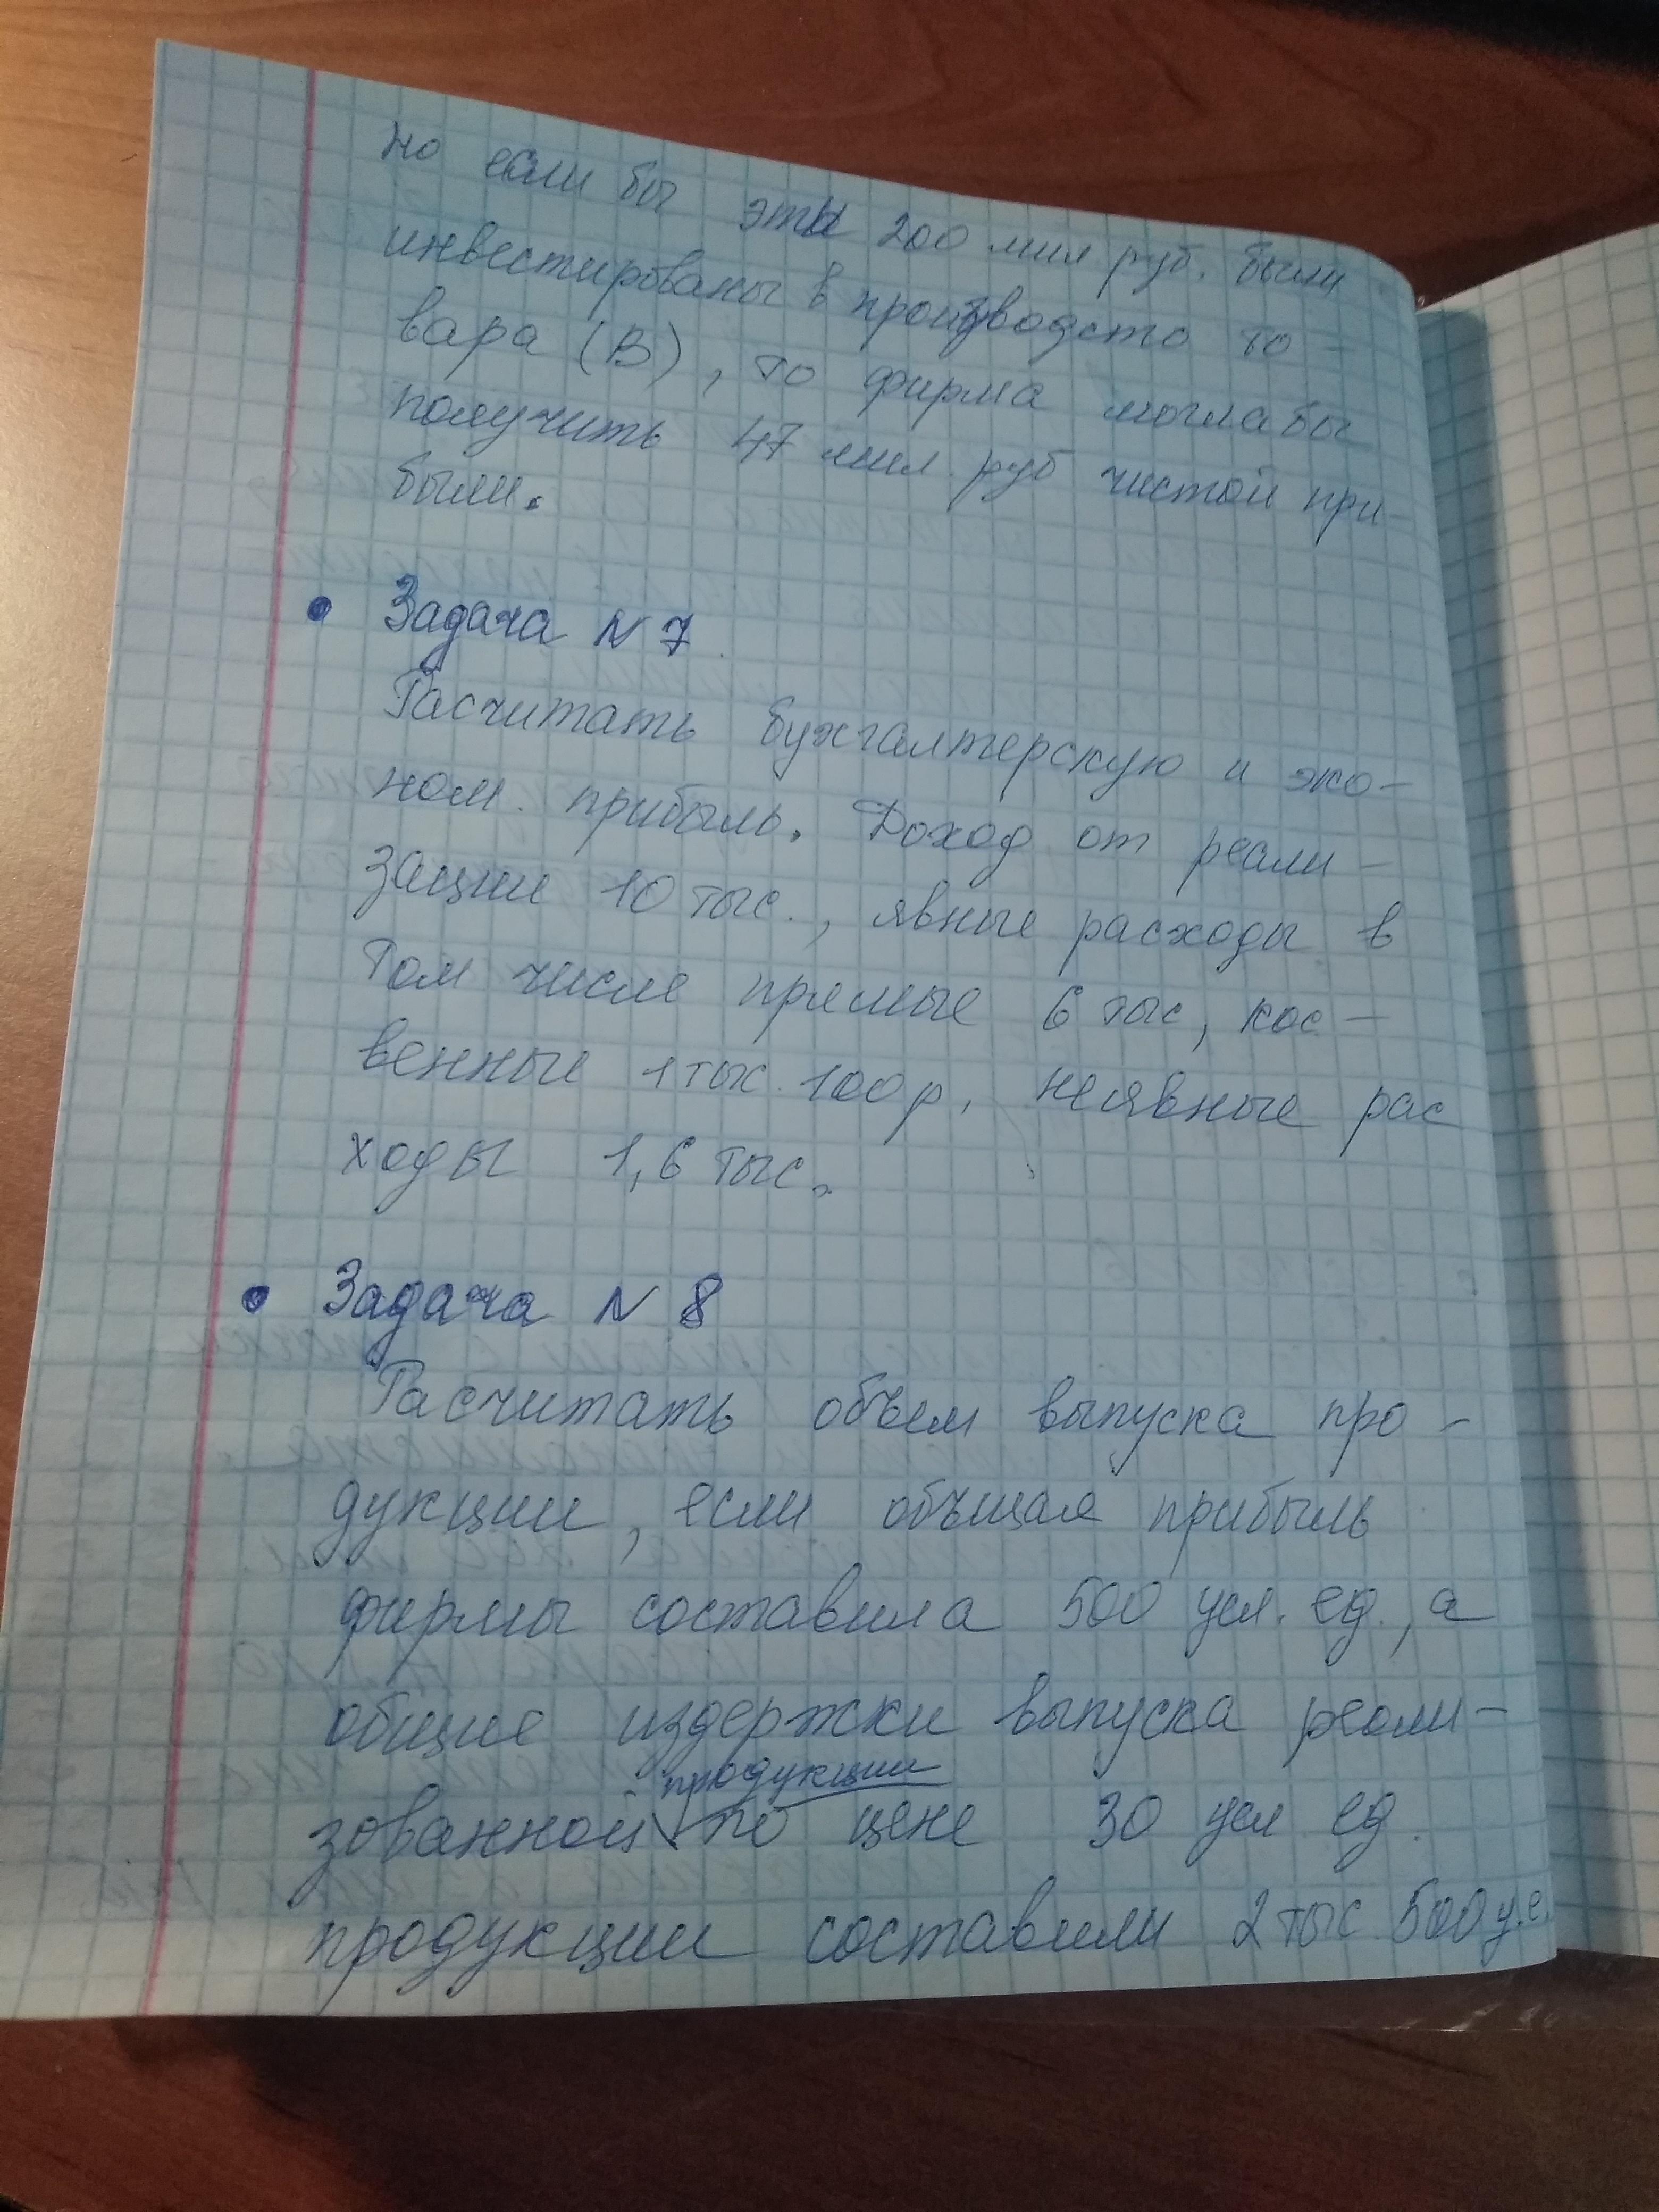 но если бы эты 200 мил руб. были
инвестированы в производсто то-
вара (В), то фирма моглабы
получить 47 мил. руб чистой при-
были.
• Задача N 7.
Расчитать бухгалтерскую и эко-
ном. прибыль. Доход от реали-
зации 10 тыс., явные расходы в
том числе прямые 6 тыс, кос-
венные 1 тыс. 100 р, неявные рас
ходы 1,6 тыс.
• Задача N 8
Расчитать объем выпуска про-
дукции, если объщая прибыль
фирмы составила 500 усл. ед., а
общие издержки выпуска реали-
зованной продукции по цене 30 усл ед.
продукции составили 2 тыс 500 у.е.